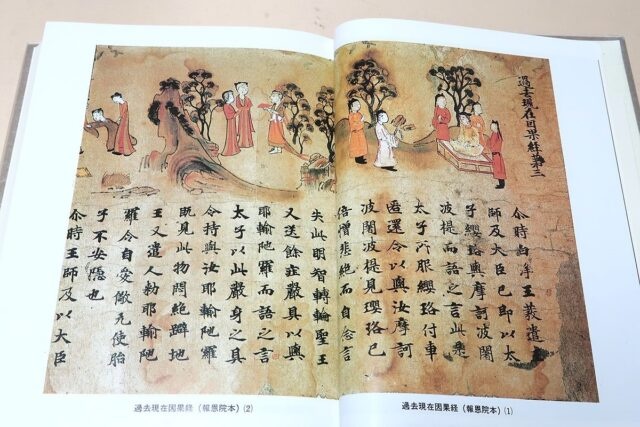 過去現在因果經第三
尒時白淨王發遣王
師及大臣已即以太
子瓔珞與摩訶波闍
波提而語之言此是
太子所服瓔珞付車
匿還令以與汝摩訶
波闍波提見瓔珞已
倍增悲絶而自念言
失此明智轉輪聖王
又送餘莊嚴具以與
耶輸陁羅而語之言
太子以此嚴身之具
令持與汝耶輸陁羅
既見此物悶絶躃地
王又遣人勅耶輸陁
羅令自愛敬无使胎
子不安隱也
尒時王師及以大臣
過去現在因果経（報恩院本）⑴
過去現在因果経（報恩院本）⑵